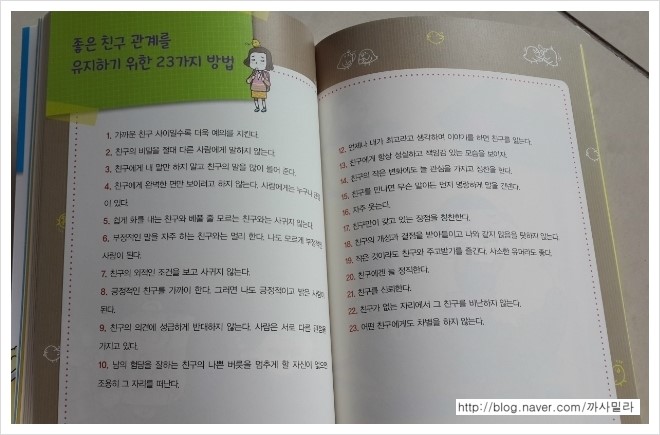 좋은 친구 관계를
유지하기 위한 23가지 방법
1. 가까운 친구 사이일수록 더욱 예의를 지킨다.
2. 친구의 비밀을 절대 다른 사람에게 말하지 않는다.
3. 친구에게 내 말만 하지 말고 친구의 말을 많이 들어 준다.
4. 친구에게 완벽한 면만 보이려고 하지 않는다. 사람에게는 누구나
이 있다.
5. 쉽게 화를 내는 친구와 베풀 줄 모르는 친구와는 사귀지 않는다.
6. 부정적인 말을 자주 하는 친구와는 멀리 한다. 나도 모르게 부정적인
사람이 된다.
7. 친구의 외적인 조건을 보고 사귀지 않는다.
8. 긍정적인 친구를 가까이 한다. 그러면 나도 긍정적이고 밝은 사람이
된다.
9. 친구의 의견에 성급하게 반대하지 않는다. 사람은 서로 다른
가지고 있다.
10. 남의 험담을 잘하는 친구의 나쁜 버릇을 멈추게 할 자신이 없으면
조용히 그 자리를 떠난다.
12. 언제나 내가 최고라고 생각하며 이야기를 하면 친구를 잃는다.
13. 친구에게 항상 성실하고 책임감 있는 모습을 보이자.
14. 친구의 작은 변화에도 늘 관심을 가지고 칭찬을 한다.
15. 친구를 만나면 무슨 말이든 먼저 명랑하게 말을 건넨다.
16. 자주 웃는다.
17. 친구만이 갖고 있는 장점을 칭찬한다.
18. 친구의 개성과 결점을 받아들이고 나와 같지 않음을 탓하지 않는다.
19. 작은 것이라도 친구와 주고받기를 즐긴다. 사소한 유머라도 좋다.
20. 친구에겐 늘 정직한다.
21. 친구를 신뢰한다.
22. 친구가 없는 자리에서 그 친구를 비난하지 않는다.
23. 어떤 친구에게도 차별을 하지 않는다.
http://blog.naver.com/까사밀라